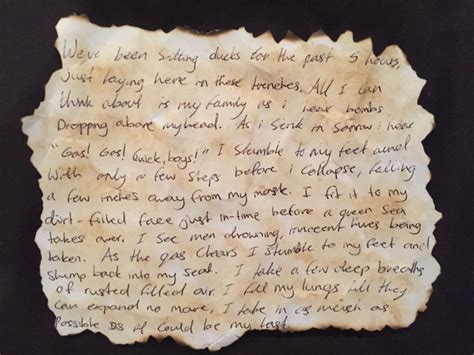 We've been sitting ducks for the past 5 hours,
just laying here in these trenches. All I can
think about is my family as i hear bombs
Dropping above my head. As i sink in sorrow i hear
"Gas! Gas! Quick, boys!" I stumble to my feet and
with only a few steps before i collapse, falling
a few inches away from my mask. I fit it to my
dirt-filled face just in-time before a green sea
takes over. I see men drowning, innocent lives being
taken. As the gas clears I stumble to my feet and
slump back into my seat. I take a few deep breaths
of rusted filled air. I fill my lungs till they
can expand no more, I take in as much as
Possible as if could be my last.